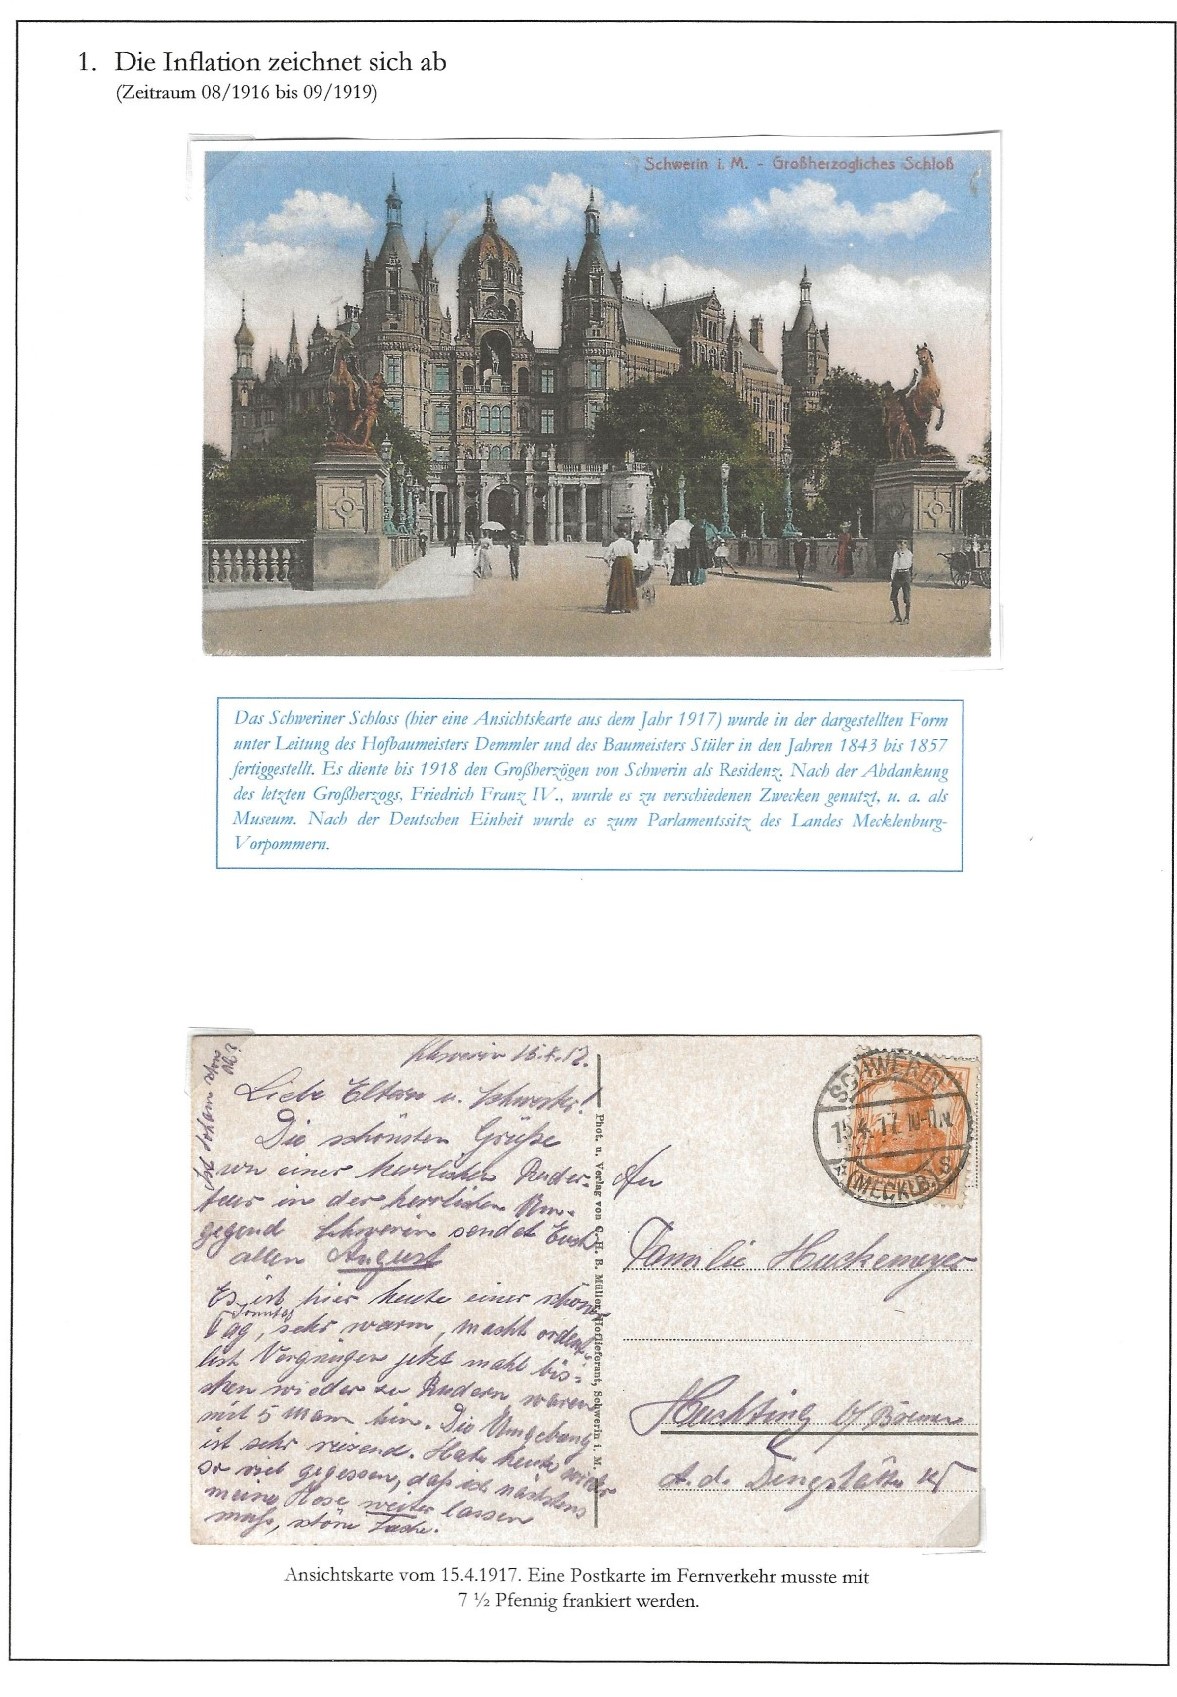 1. Die Inflation zeichnet sich ab
(Zeitraum 08/1916 bis 09/1919)
Schwerin i. M. - Großherzogliches Schloß
Das Schweriner Schloss (hier eine Ansichtskarte aus dem Jahr 1917) wurde in der dargestellten Form
unter Leitung des Hofbaumeisters Demmler und des Baumeisters Stüler in den Jahren 1843 bis 1857
fertiggestellt. Es diente bis 1918 den Großherzögen von Schwerin als Residenz. Nach der Abdankung
des letzten Großherzogs, Friedrich Franz IV., wurde es zu verschiedenen Zwecken genutzt, u. a. als
Museum. Nach der Deutschen Einheit wurde es zum Parlamentssitz des Landes Mecklenburg-
Vorpommern.
Schwerin 15.4.17.
Liebe Eltern u. Schwester!
Die schönsten Grüße
von einer herrlichen Ruder-
tour in der herrlichen Um-
gegend Schwerin sendet Euch
allen August
Es ist hier heute einer schöner
Sonntag
Tag, sehr warm, macht ordent-
lich Vergnügen jetzt mahl bis-
chen wieder zu Rudern, waren
mit 5 Mann hin. Die Umgebung
ist sehr reizend. Habe heute wieder
so viel gegessen, daß ich nächstens
meine Hose weiter lassen
muß, schöne Sache.
Phot. u. Verlag von C. H. B. Müller, Hoflieferant, Schwerin i. M.
SCHWERIN
15.4.17. 10-11.V.
(MECKLB.)
An
Familie Huckemeyer
Huchting b/Bremen
A. d. Dingstätte
Ansichtskarte vom 15.4.1917. Eine Postkarte im Fernverkehr musste mit
7 ½ Pfennig frankiert werden.